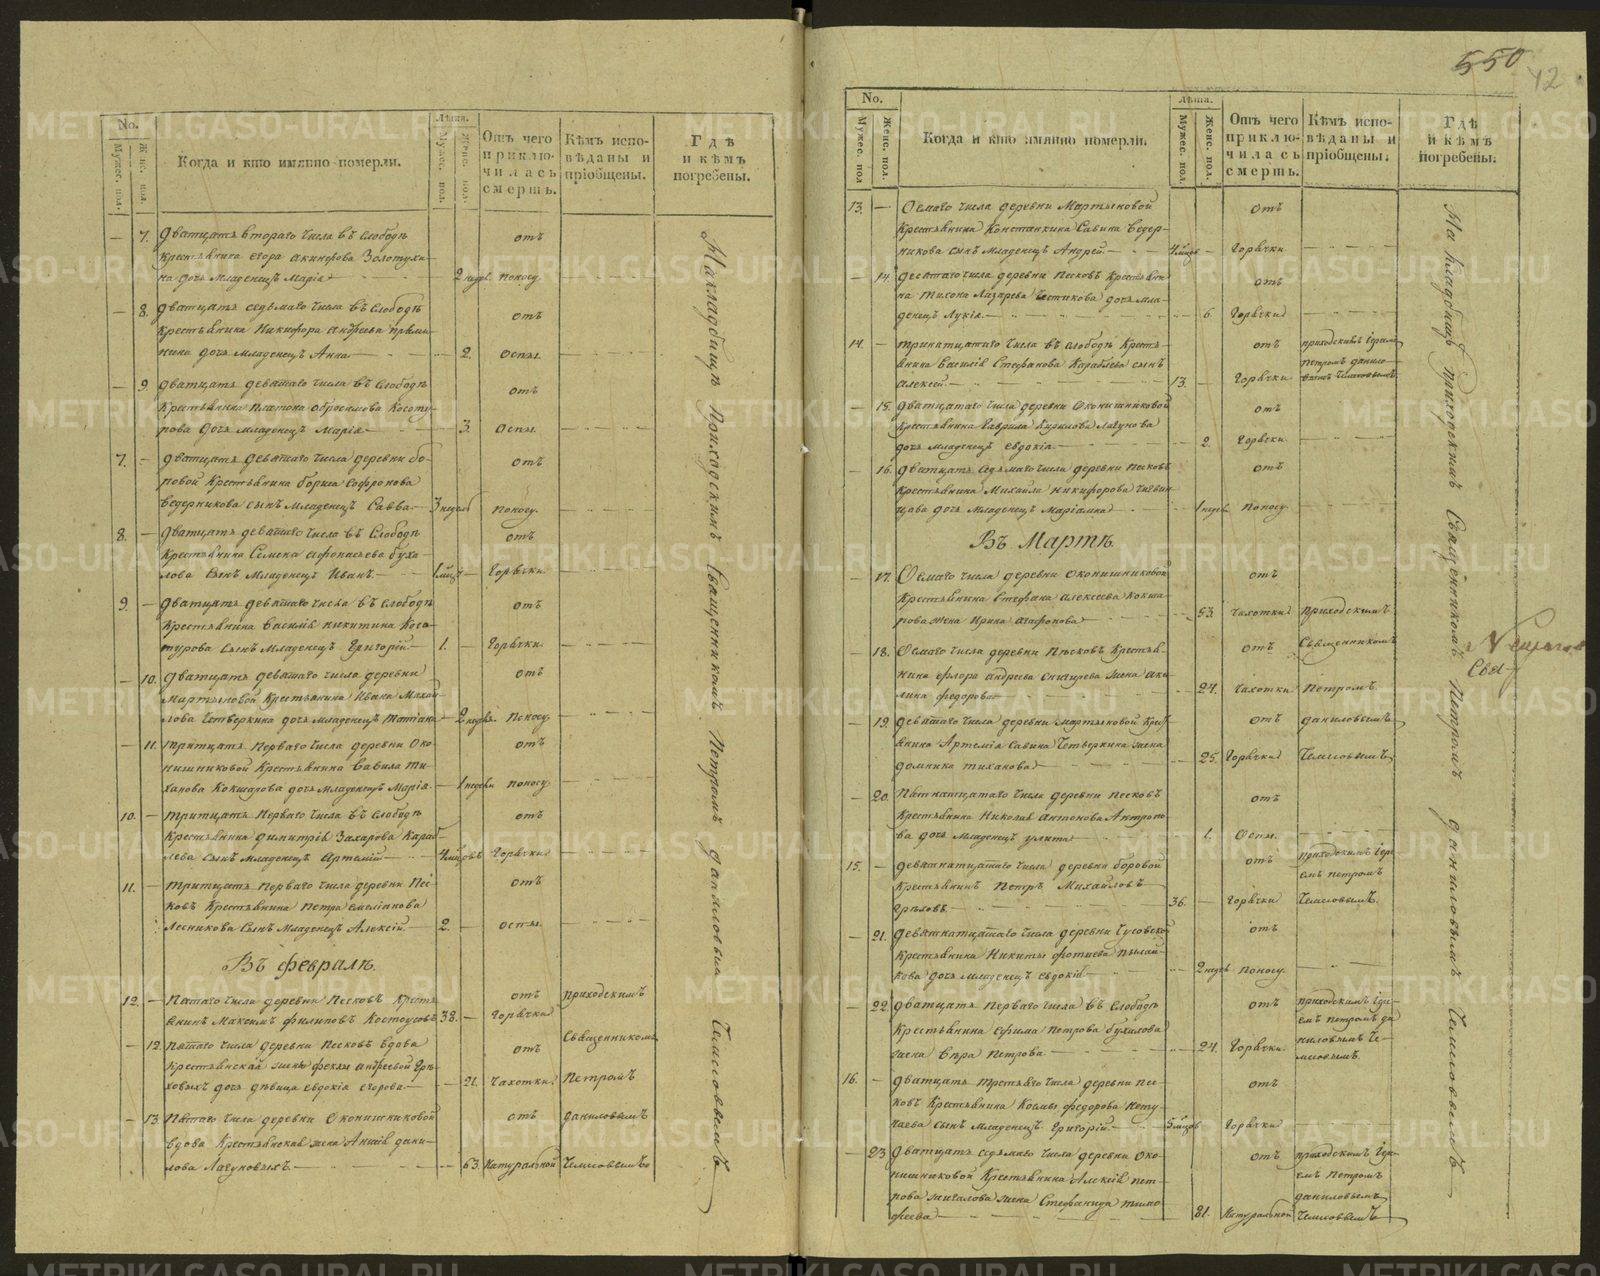 No.
Мужес. пол.
Женс. пол.
Когда и кто имянно померли.
Лѣта.
Мужес. пол.
Женс. пол.
Отъ чего приклю-
чилась смерть.
Кѣмъ испо-
вѣданы и
пріобщены.
Гдѣ
и кѣмъ
погребены.
— 7. Дватцать втораго числа въ слободѣ отъ
крестьянина Егора Акинфова Золотухи-
на дочь младенецъ Марія 2 недѣ. поносу
— 8. Дватцать седьмаго числа въ слободѣ отъ
крестьянина Никифора Андреева
дочь младенецъ Анна 2. оспы.
— 9. Дватцать девятаго числа въ слободѣ отъ
крестьянина Платона Обросимова Косоту-
рова дочь младенецъ Марія 3. оспы.
7. — Дватцать девятаго числа деревни Бо- отъ
ровой крестьянина Бориса Софронова
Ведерникова сынъ младенецъ Савва 3 недѣл поносу.
8. — Дватцать девятаго числа въ слободѣ отъ
крестьянина Семена Афонасьева Буха-
лова сынъ младенецъ Иванъ 1 мѣц — горячки
9. — Дватцать девятаго числа въ слободѣ отъ
крестьянина Василія Никитина Косо-
турова сынъ младенецъ Григорій 1. — горячки.
— 10. Дватцать девятаго числа деревни отъ
Мартыновой крестьянина Ивана Михай-
лова Четверкина дочь младенецъ Татіана 2 недѣл. поносу
— 11. Тритцать перваго числа деревни Око- отъ
нишниковой крестьянина Вавила Ти-
ханова Кокшарова дочь младенецъ Марія. 1 недѣли поносу
10. — Тритцать перваго числа въ слободѣ отъ
крестьянина Димитрія Захарова Караб-
лева сынъ младенецъ Артемій 4 мѣцовъ горячки
11. — Тритцать перваго числа деревни Пес- отъ
ковъ крестьянина Петра Емеліанова
Лесникова сынъ младенецъ Алексій 2. — оспы.
Въ Февралѣ.
12. — Пятаго числа деревни Песковъ кресть- отъ приходскимъ
янинъ Максимъ Филиповъ Костоусовъ 38. — горячки
— 12. Пятаго числа деревни Песковъ вдова отъ священникомъ
крестьянская жены Феклы Андреевой
дочь дѣвица Евдокія Егорова 21. чахотки. Петромъ
— 13 Пятаго числа деревни Оконишниковой отъ Даниловымъ
вдова крестьянская жена Дани-
лова Лагуновыхъ. 63. натуральной
На кладбищѣ приходскимъ священникомъ Петромъ Даниловымъ
550
42
No.
Мужес. пол
Женс. пол.
Когда и кто имянно померли.
Лѣта.
Мужес. пол.
Женс. пол.
Отъ чего
приклю-
чилась
смерть.
Кѣмъ испо-
вѣданы и
пріобщены.
Гдѣ
и кѣмъ
погребены.
13. — Осмаго числа деревни Мартыновой отъ
крестьянина Констанкина Савина Ведер-
никова сынъ младенецъ Андрей 4 мѣцов — горячки
— 14. Десятаго числа деревни Песковъ крестьяни- отъ
на Тихона Лазарева дочь мла-
денецъ Лукія. 6. горячки
14. — Тринатцатаго числа въ слободѣ кресть- отъ приходскимъ Іерем
янина Василія Стефанова Караблева сынъ Петромъ Данило-
Алексѣй 13. — горячки
— 15. Дватцатаго числа деревни Оконишниковой отъ
крестьянина Гаврила Кирилова Лагунова
дочь младенецъ Евдокія 2. горячки.
— 16. Дватцать седмаго числа деревни Песковъ отъ
крестьянина Михаила Никифорова
дочь младенецъ Маріамна 1 недѣ. поносу
Въ Мартѣ.
— 17. Осмаго числа деревни Оконишниковой отъ
крестьянина Стефана Алексеева Кокша-
рова жена Ирина Агафонова 53. чахотки приходскимъ
— 18. Осмаго числа деревни Песковъ кресть- отъ священникомъ
янина Флора Андреева жена Аку-
лина Федорова 24. чахотки Петромъ
— 19. Девятаго числа деревни Мартыновой крес- отъ Даниловымъ
янина Артемія Савина Четверкина жена
Домника Тиханова 25. горячки
— 20. Пятнатцатаго числа деревни Песковъ отъ
крестьянина Николая Антонова Антропо-
ва дочь младенецъ Улита 1. оспы.
15. — Девятнатцатаго числа деревни Боровой отъ приходскимъ Іере-
крестьянинъ Петръ Михайловъ емъ Петромъ
Грѣховъ. 36. — горячки
— 21. Девятнатцатаго числа деревни отъ
крестьянина Никиты Фотиева
дочь младенецъ Евдокія 2 недѣл поносу.
— 22. Дватцать перваго числа въ слободѣ отъ приходскимъ Іере-
крестьянина Ефима Петрова Бухалова емъ Петромъ Да-
жена Вѣра Петрова 24. горячки ниловымъ
16. — Дватцать третьяго числа деревни Пес- отъ
ковъ крестьянина Космы Федорова
сынъ младенецъ Григорій 5 мѣцов горячки
— 23 Дватцать седмаго числа деревни Око- отъ приходскимъ Іере-
нишниковой крестьянина Алексія Пет- емъ Петромъ
рова жена Стефанида Тимо- Даниловымъ
феева 81. натуральной
На кладбищѣ приходскимъ священникомъ Петромъ Даниловымъ
METRIKI.GASO-URAL.RU